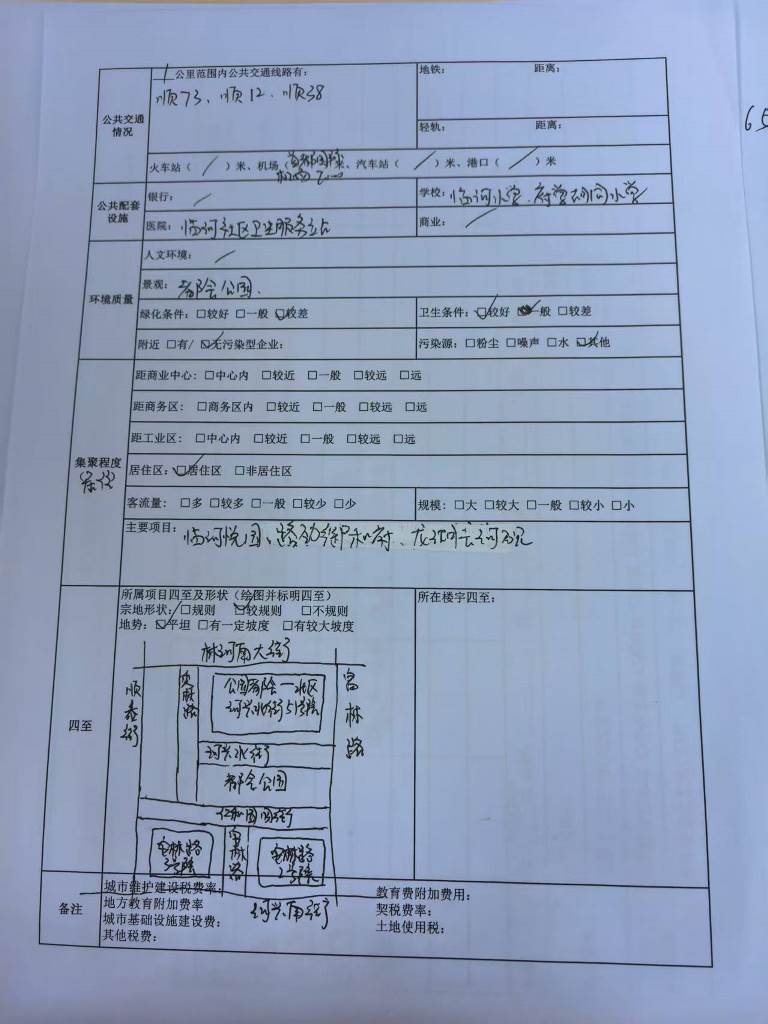 公共交通情况
1公里范围内公共交通线路有：
顺73、顺12、顺38
地铁： 距离：
轻轨： 距离：
火车站（ / ）米、机场（首都国际机场 ）米、汽车站（ / ）米、港口（ / ）米
公共配套设施
银行： /
学校：临河小学、府学胡同小学
医院：临河社区卫生服务站
商业： /
环境质量
人文环境： /
景观：都会公园、
绿化条件：□较好 □一般 ☑较差
卫生条件：☑较好 ■一般 □较差
附近 □有/ ☑无污染型企业：
污染源：□粉尘 □噪声 □水 ☑其他
集聚程度
距商业中心：□中心内 □较近 □一般 □较远 □远
距商务区：□商务区内 □较近 □一般 □较远 □远
距工业区：□中心内 □较近 □一般 □较远 □远
居住区：☑居住区 □非居住区
客流量：□多 □较多 □一般 □较少 □少
规模：□大 □较大 □一般 □较小 □小
主要项目：临河悦园、路劲御和府、
四至
所属项目四至及形状（绘图并标明四至）
宗地形状：□规则 ☑较规则 □不规则
地势：☑平坦 □有一定坡度 □有较大坡度
所在楼宇四至：
林河南大街
顺泰街
公园都会一北区
河兴北街51号院
富林路
河兴北街
都会公园
仁和园街
富林路
2号院
河兴南街
备注
城市维护建设税费率：
教育费附加费用：
地方教育附加费率
契税费率：
城市基础设施建设费：
土地使用税：
其他税费：
65